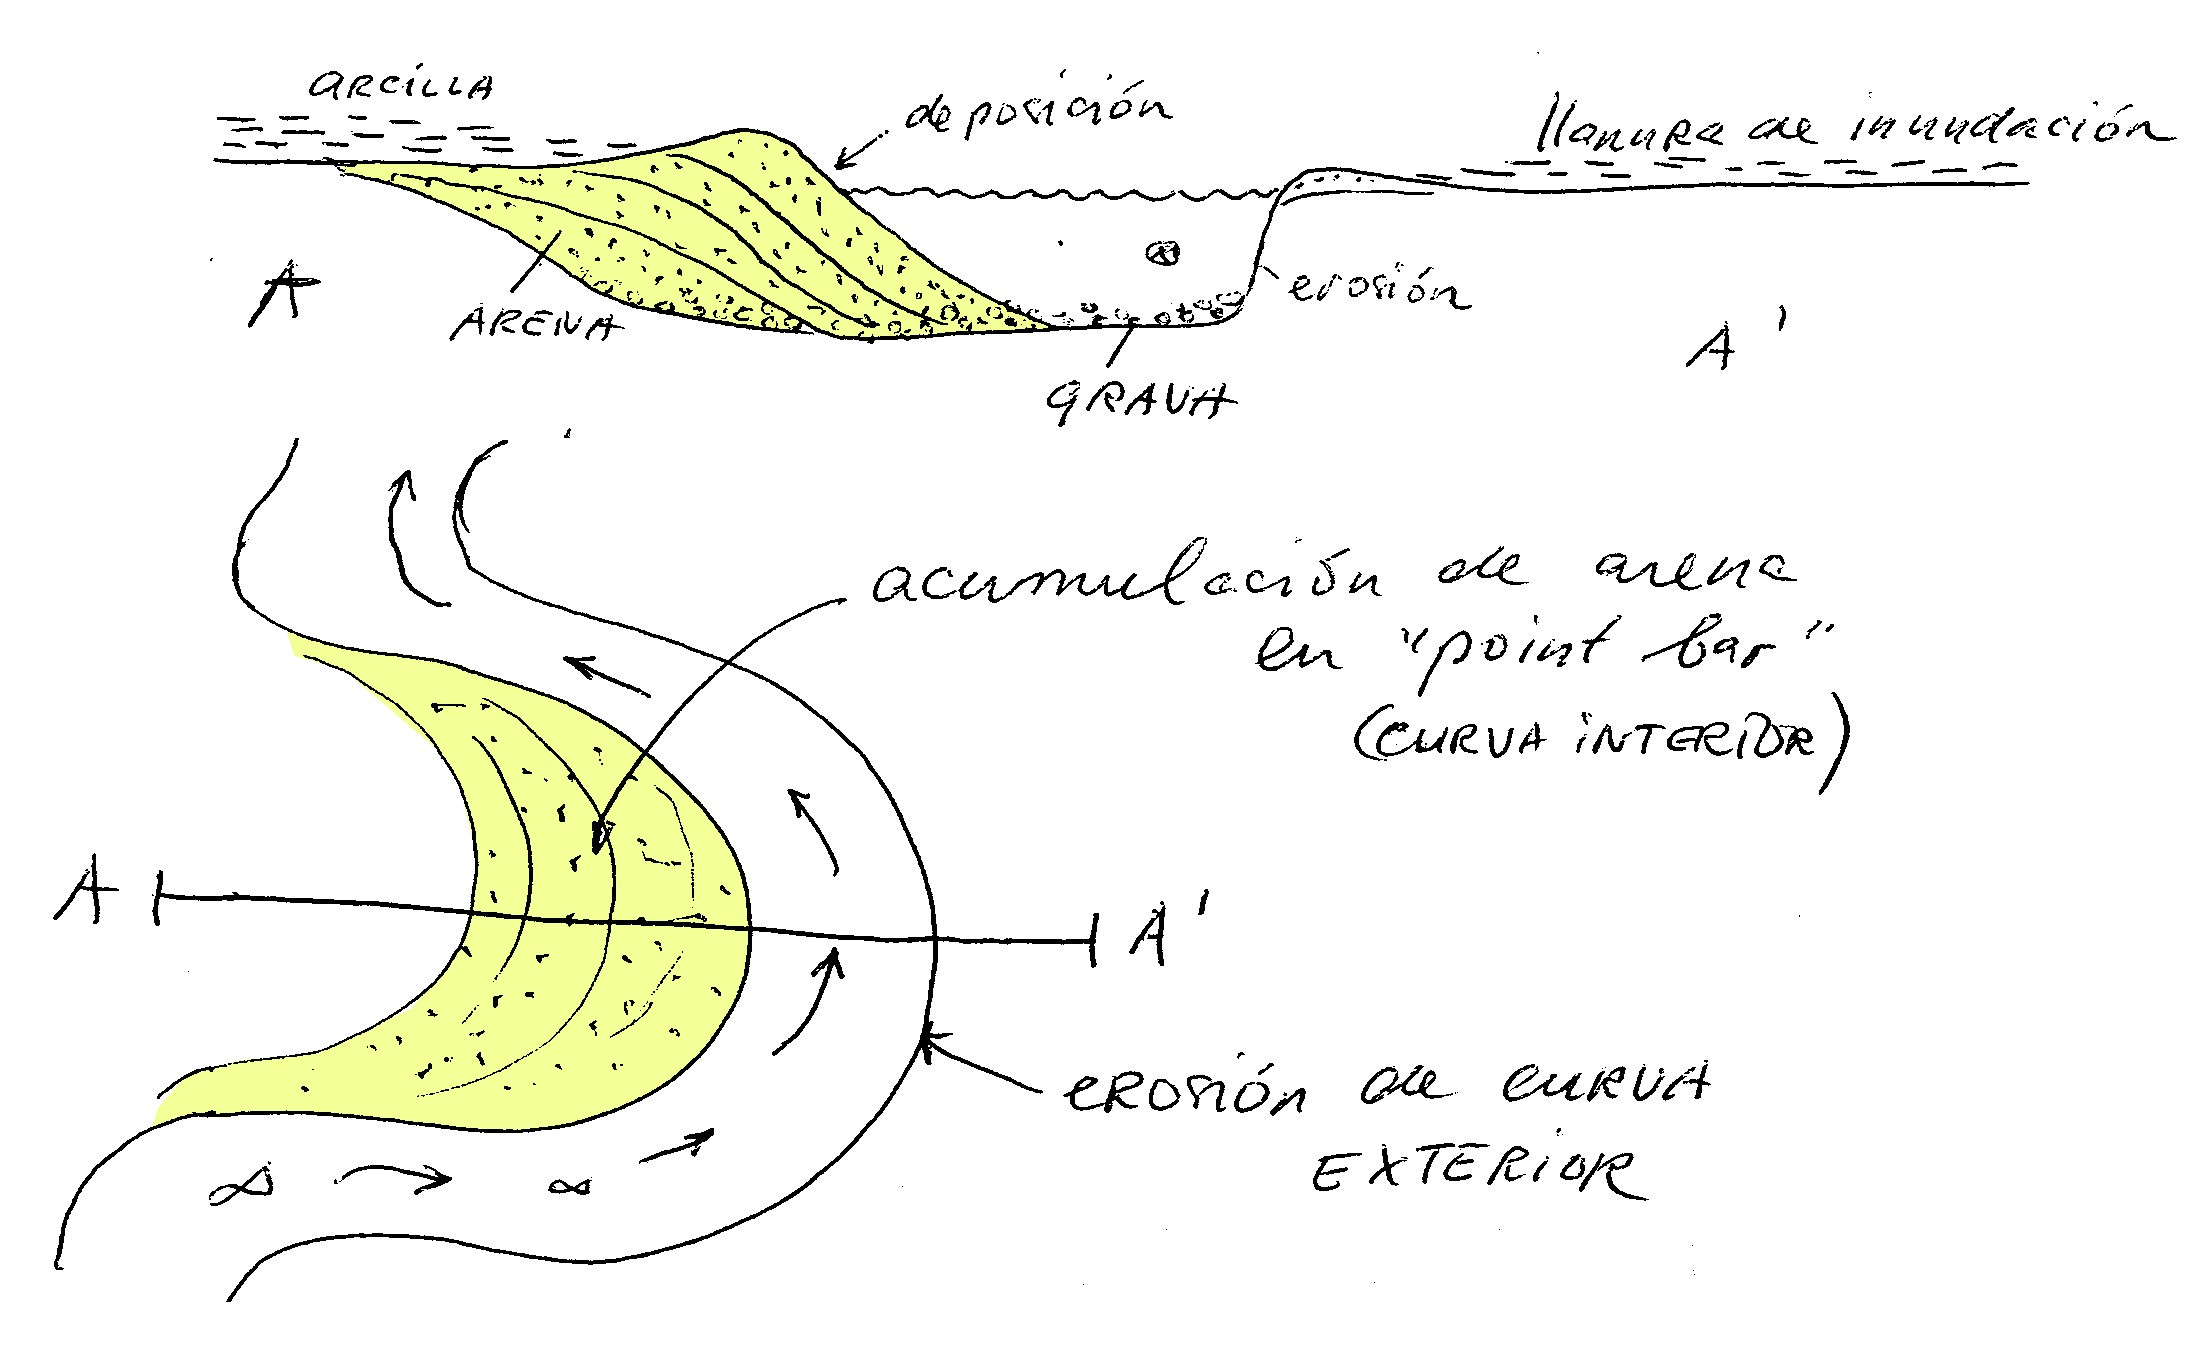 arcilla
deposición
llanura de inundación
A
ARENA
erosión
GRAVA
A'
acumulación de arena
en "point bar"
(CURVA INTERIOR)
A
A'
erosión de CURVA
EXTERIOR